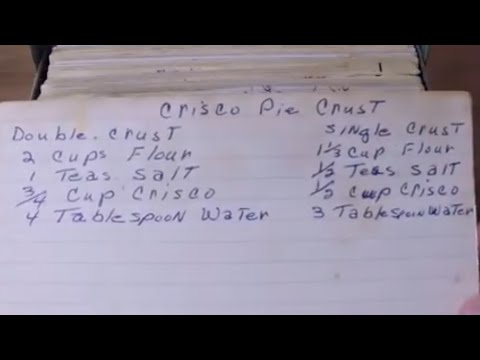 Crisco Pie Crust
Double. Crust
2 Cups Flour
1 Teas Salt
3/4 Cup Crisco
4 Tablespoon Water
Single Crust
1 1/3 Cup Flour
1/2 Teas Salt
1/2 Cup Crisco
3 Tablespoon Water